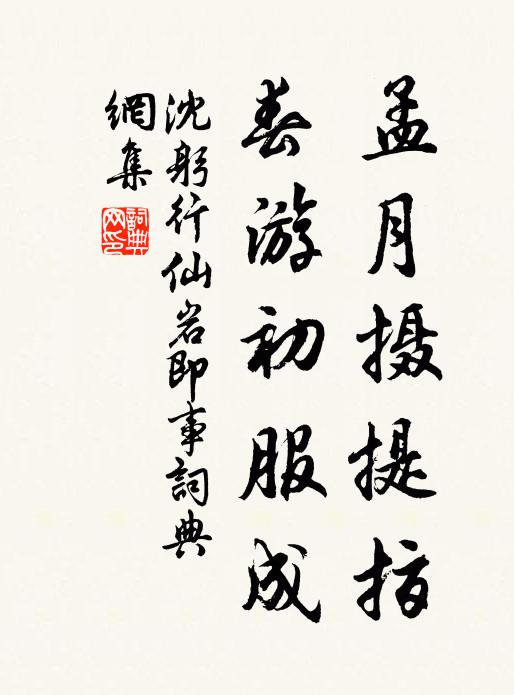 孟月摄提指
春游初服成
沈躬行仙岩即事詞典
網集
詞典
网印